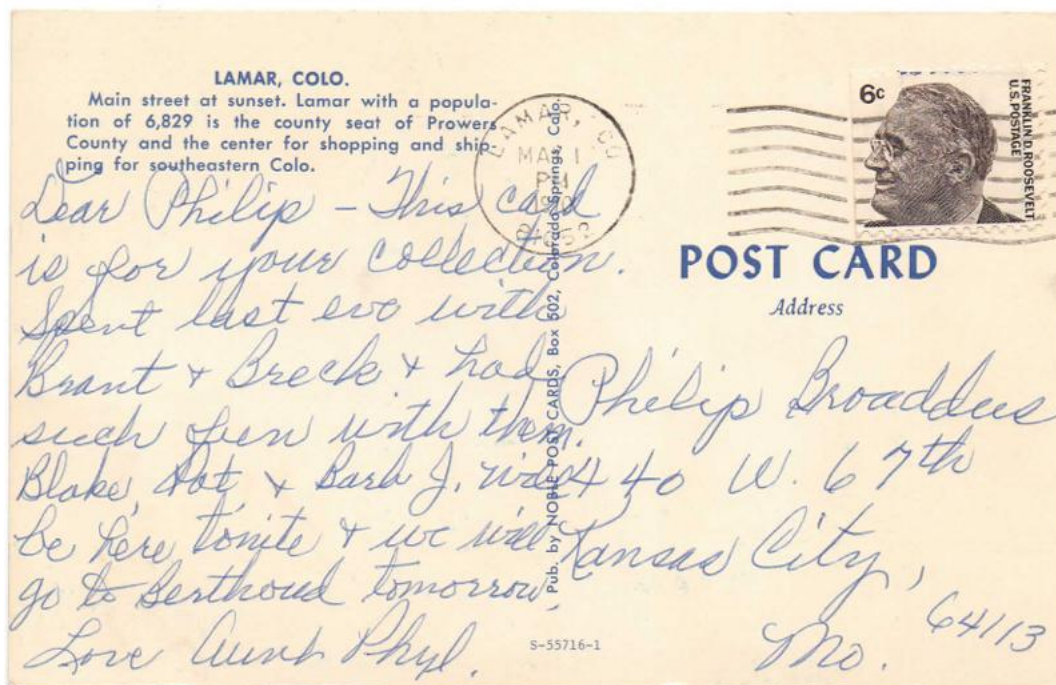 LAMAR, COLO.
Main street at sunset. Lamar with a popula-
tion of 6,829 is the county seat of Prowers
County and the center for shopping and ship-
ping for southeastern Colo.
Dear Philip – This card
is for your collection.
Spent last eve with
Brant + Breck + had
such fun with them.
Blake, Dot, + Barb J. will
be here tonite + we will
go to Berthoud tomorrow.
Love Aunt Phyl.
Pub. by NOBLE POST CARDS, Box 502, Colorado Springs, Colo.
S-55716-1
LAMAR, CO
PM
6c
FRANKLIN D. ROOSEVELT
U.S. POSTAGE
POST CARD
Address
Philip Broaddus
440 W. 67th
Kansas City,
Mo.
64113